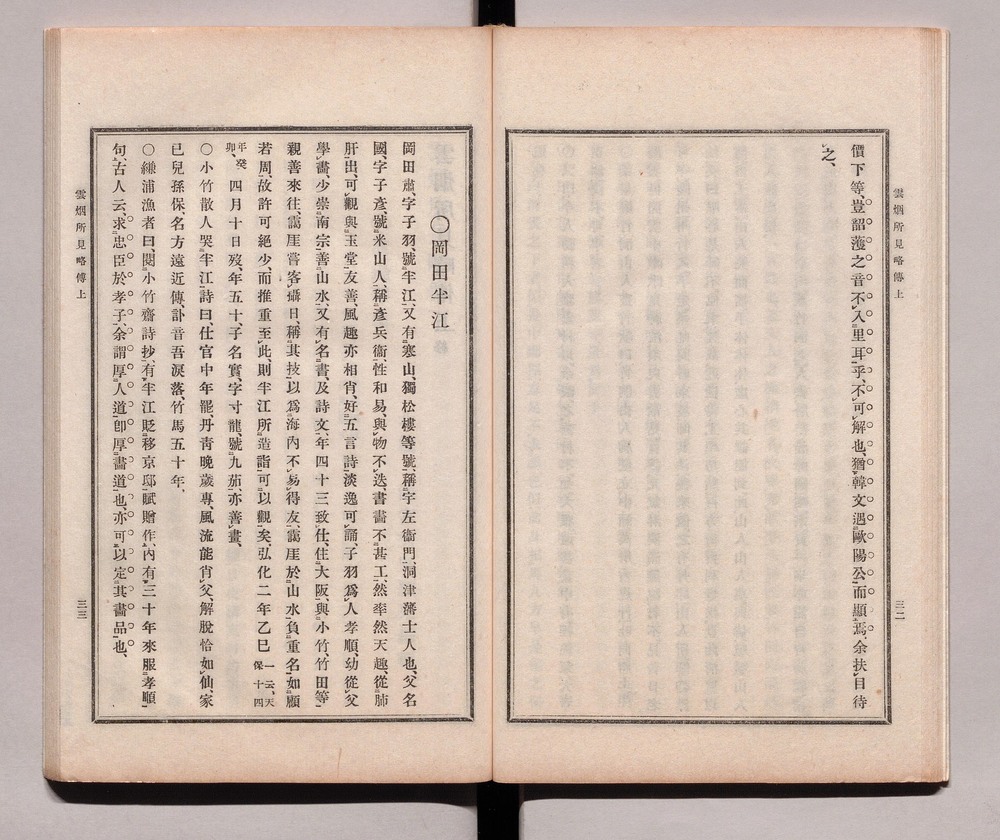 雲烟所見略傳上
三二
價下等、豈韶濩之音不入里耳乎、不可解也、猶韓文遇歐陽公而顯焉、余扶目待
之、
〇岡田半江
岡田肅、字子羽、號半江、又有寒山獨松樓等號、稱宇左衞門、洞津藩士人也、父名
國、字子彥、號米山人、稱彥兵衞、性和易、與物不迭書畫不甚工、然率然天趣、從肺
肝出、可觀與玉堂友善、風趣亦相肖、好五言詩、淡逸可誦、子羽爲人孝順、幼從父
學畫、少崇南宗、善山水、又有名書、及詩文、年四十三致仕、住大阪、與小竹、竹田等
親善來往、靄厓嘗客攝日、稱其技以爲海內不易得友、靄厓於山水負重名、如顧
若周、故許可絕少、而推重至此、則半江所造詣、可以觀矣、弘化二年乙巳一云、天保十四
年癸卯、四月十日歿、年五十、子名實、字寸龍、號九茄、亦善畫、
〇小竹散人哭半江詩曰、仕官中年罷、丹靑晚歲專、風流能肖父、解脫恰如仙、家
已兒孫保、名方遠近傳、訃音吾淚落、竹馬五十年、
〇縑浦漁者曰、閱小竹齋詩抄、有半江貶移京邸賦贈作、內有三十年來服孝順
句、古人云、求忠臣於孝子、余謂厚人道、卽厚畫道也、亦可以定其畫品也、
雲烟所見略傳上
三三